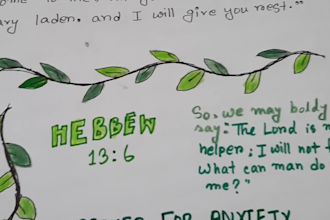 ary laden. and I will give you rest."
HEBREW
13:6
So, we may boldly
say: The Lord is m
helper; I will not f
What can man do
me?"
FOR ANXIETY